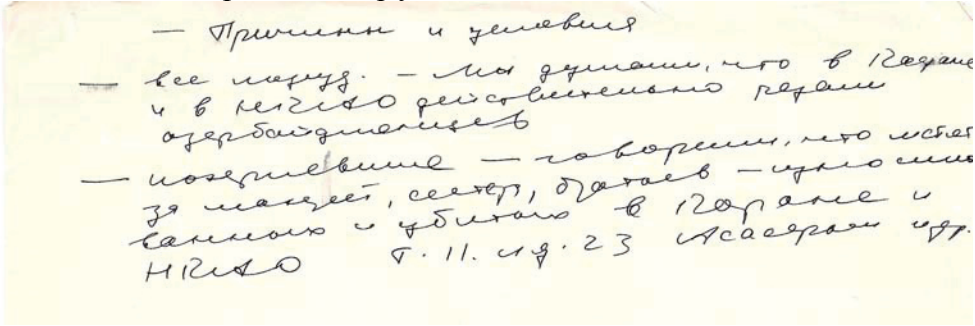 — Причины и условия
— все подсуд. — Мы думали, что в Кафане
и в НКАО действительно резали
азербайджанцев
— потерпевшие — говорили, что мстят
за матерей, сестер, братьев —
ванных и убитых в Кафане и
НКАО Т. 11. лд. 23 и др.